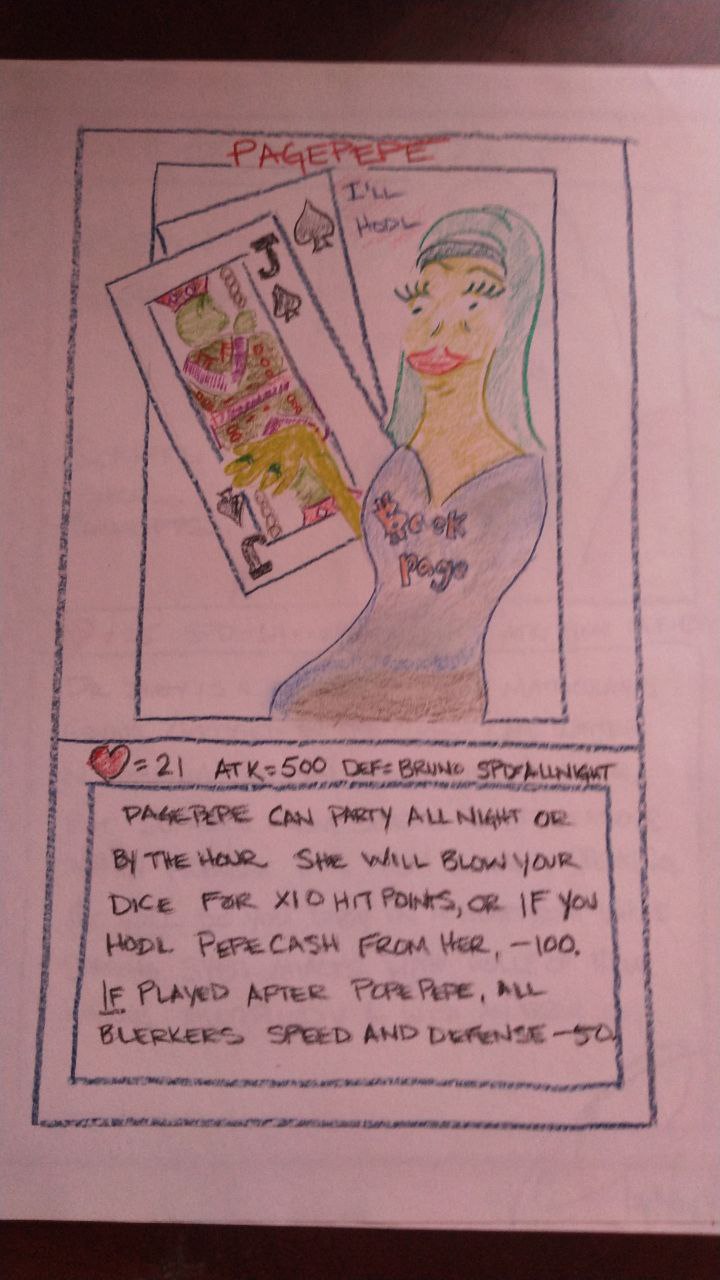 PAGEPEPE
I'LL
HODL
J
J
Book
page
= 21 ATK=500 DEF=BRUNO SPD=ALLNIGHT
PAGEPEPE CAN PARTY ALL NIGHT OR
BY THE HOUR SHE WILL BLOW YOUR
DICE FOR X10 HIT POINTS, OR IF YOU
HODL PEPECASH FROM HER, -100.
IF PLAYED AFTER POPEPEPE, ALL
BLERKERS SPEED AND DEFENSE -50.